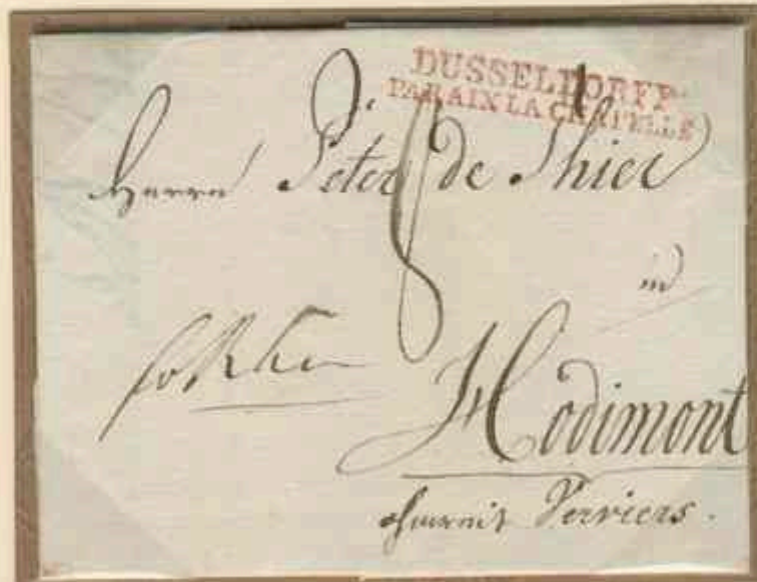 DUSSELDORFF
PAR AIX LA CHAPELLE
Herrn Peter de Thier
8
in
Hodimont
Verviers.